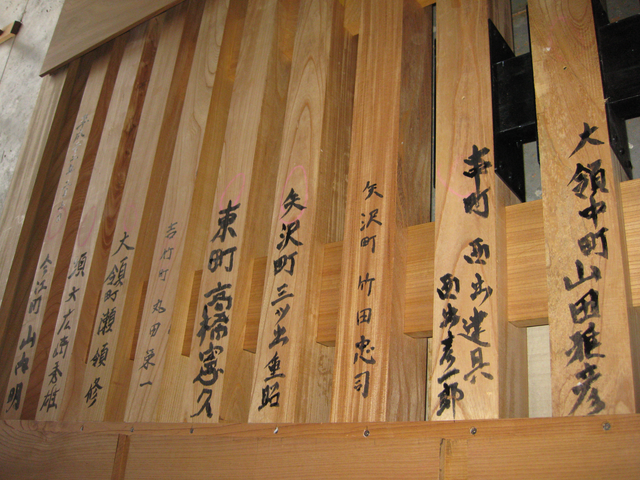 大領中町 山田雅彦
幸町 西出建具
西出彦一郎
矢沢町 竹田忠司
矢沢町 三ツ出重昭
東町 高橋憲久
吉竹町 丸田栄一
大領町 瀬領修
須天広西秀雄
今江町 山本明